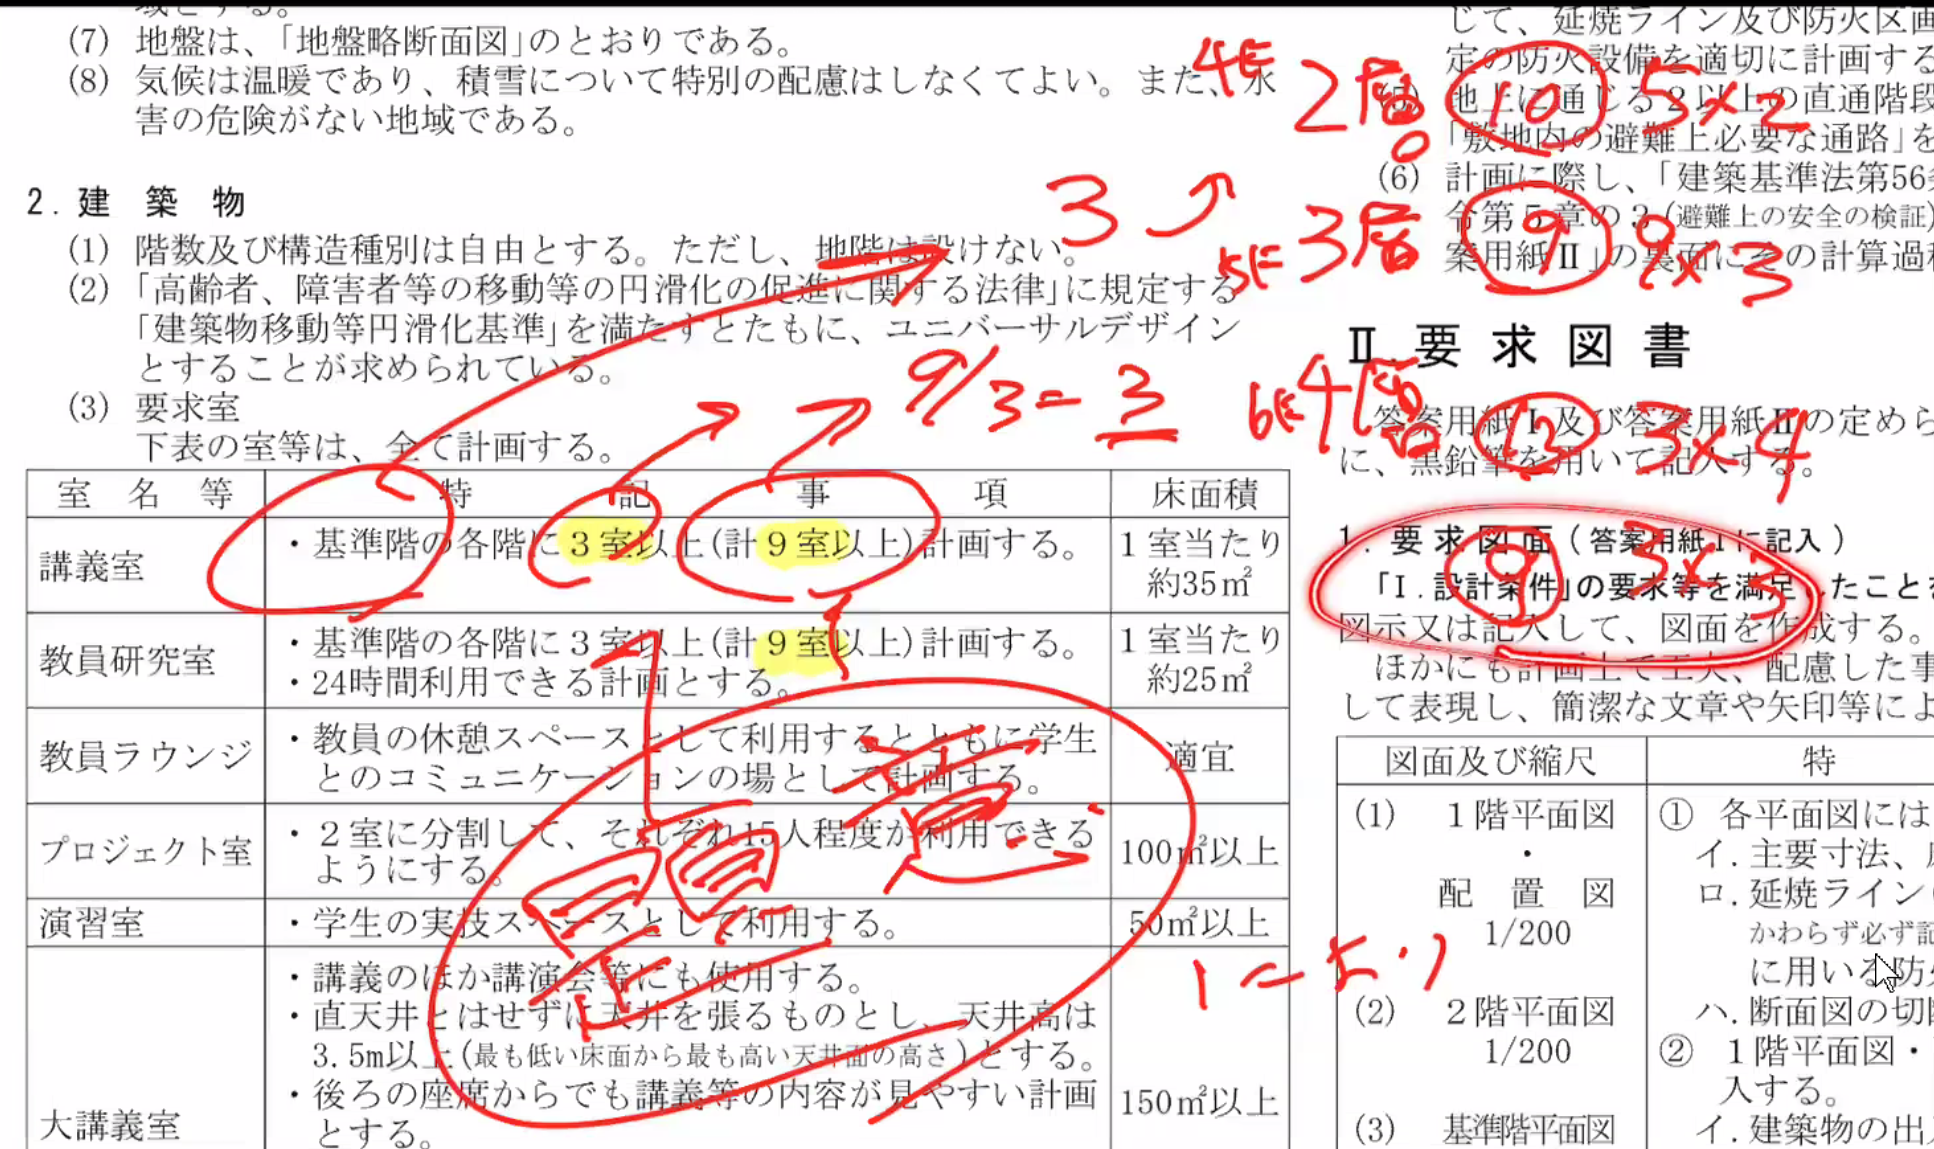 域とする。
(7) 地盤は、「地盤略断面図」のとおりである。
(8) 気候は温暖であり、積雪について特別の配慮はしなくてよい。また、水
害の危険がない地域である。
2. 建 築 物
(1) 階数及び構造種別は自由とする。ただし、地階は設けない。
(2) 「高齢者、障害者等の移動等の円滑化の促進に関する法律」に規定する
「建築物移動等円滑化基準」を満たすとともに、ユニバーサルデザイン
とすることが求められている。
(3) 要求室
下表の室等は、全て計画する。
室 名 等 特 記 事 項 床面積
講義室 ・基準階の各階に3室以上(計9室以上)計画する。 1室当たり
約35㎡
教員研究室 ・基準階の各階に3室以上(計9室以上)計画する。 1室当たり
・24時間利用できる計画とする。 約25㎡
教員ラウンジ ・教員の休憩スペースとして利用するとともに学生
とのコミュニケーションの場として計画する。 適宜
プロジェクト室 ・2室に分割して、それぞれ15人程度が利用できる
ようにする。 100㎡以上
演習室 ・学生の実技スペースとして利用する。 50㎡以上
大講義室 ・講義のほか講演会等にも使用する。
・直天井とはせずに天井を張るものとし、天井高は
3.5m以上(最も低い床面から最も高い天井面の高さ)とする。
・後ろの座席からでも講義等の内容が見やすい計画
とする。 150㎡以上
3
9/3=3
4F 2層 10 5×2
5F 3層 9 9×3
6F 4層 12 3×4
9 3×3
じて、延焼ライン及び防火区画
定の防火設備を適切に計画する
(5) 地上に通じる2以上の直通階段
「敷地内の避難上必要な通路」を
(6) 計画に際し、「建築基準法第56条
令第5章の3(避難上の安全の検証)
案用紙Ⅱ」の裏面にその計算過程
Ⅱ. 要 求 図 書
答案用紙Ⅰ及び答案用紙Ⅱの定めら
に、黒鉛筆を用いて記入する。
1. 要 求 図 面 (答案用紙Ⅰに記入)
「Ⅰ. 設計条件」の要求等を満足したことを
図示又は記入して、図面を作成する。
ほかにも計画上で工夫、配慮した事
して表現し、簡潔な文章や矢印等によ
図面及び縮尺 特
(1) 1階平面図 ① 各平面図には
・ イ. 主要寸法、
配 置 図 ロ. 延焼ライン
1/200 かわらず必ず記
に用いる防火
(2) 2階平面図 ハ. 断面図の切断
1/200 ② 1階平面図・
入する。
(3) 基準階平面図 イ. 建築物の出入